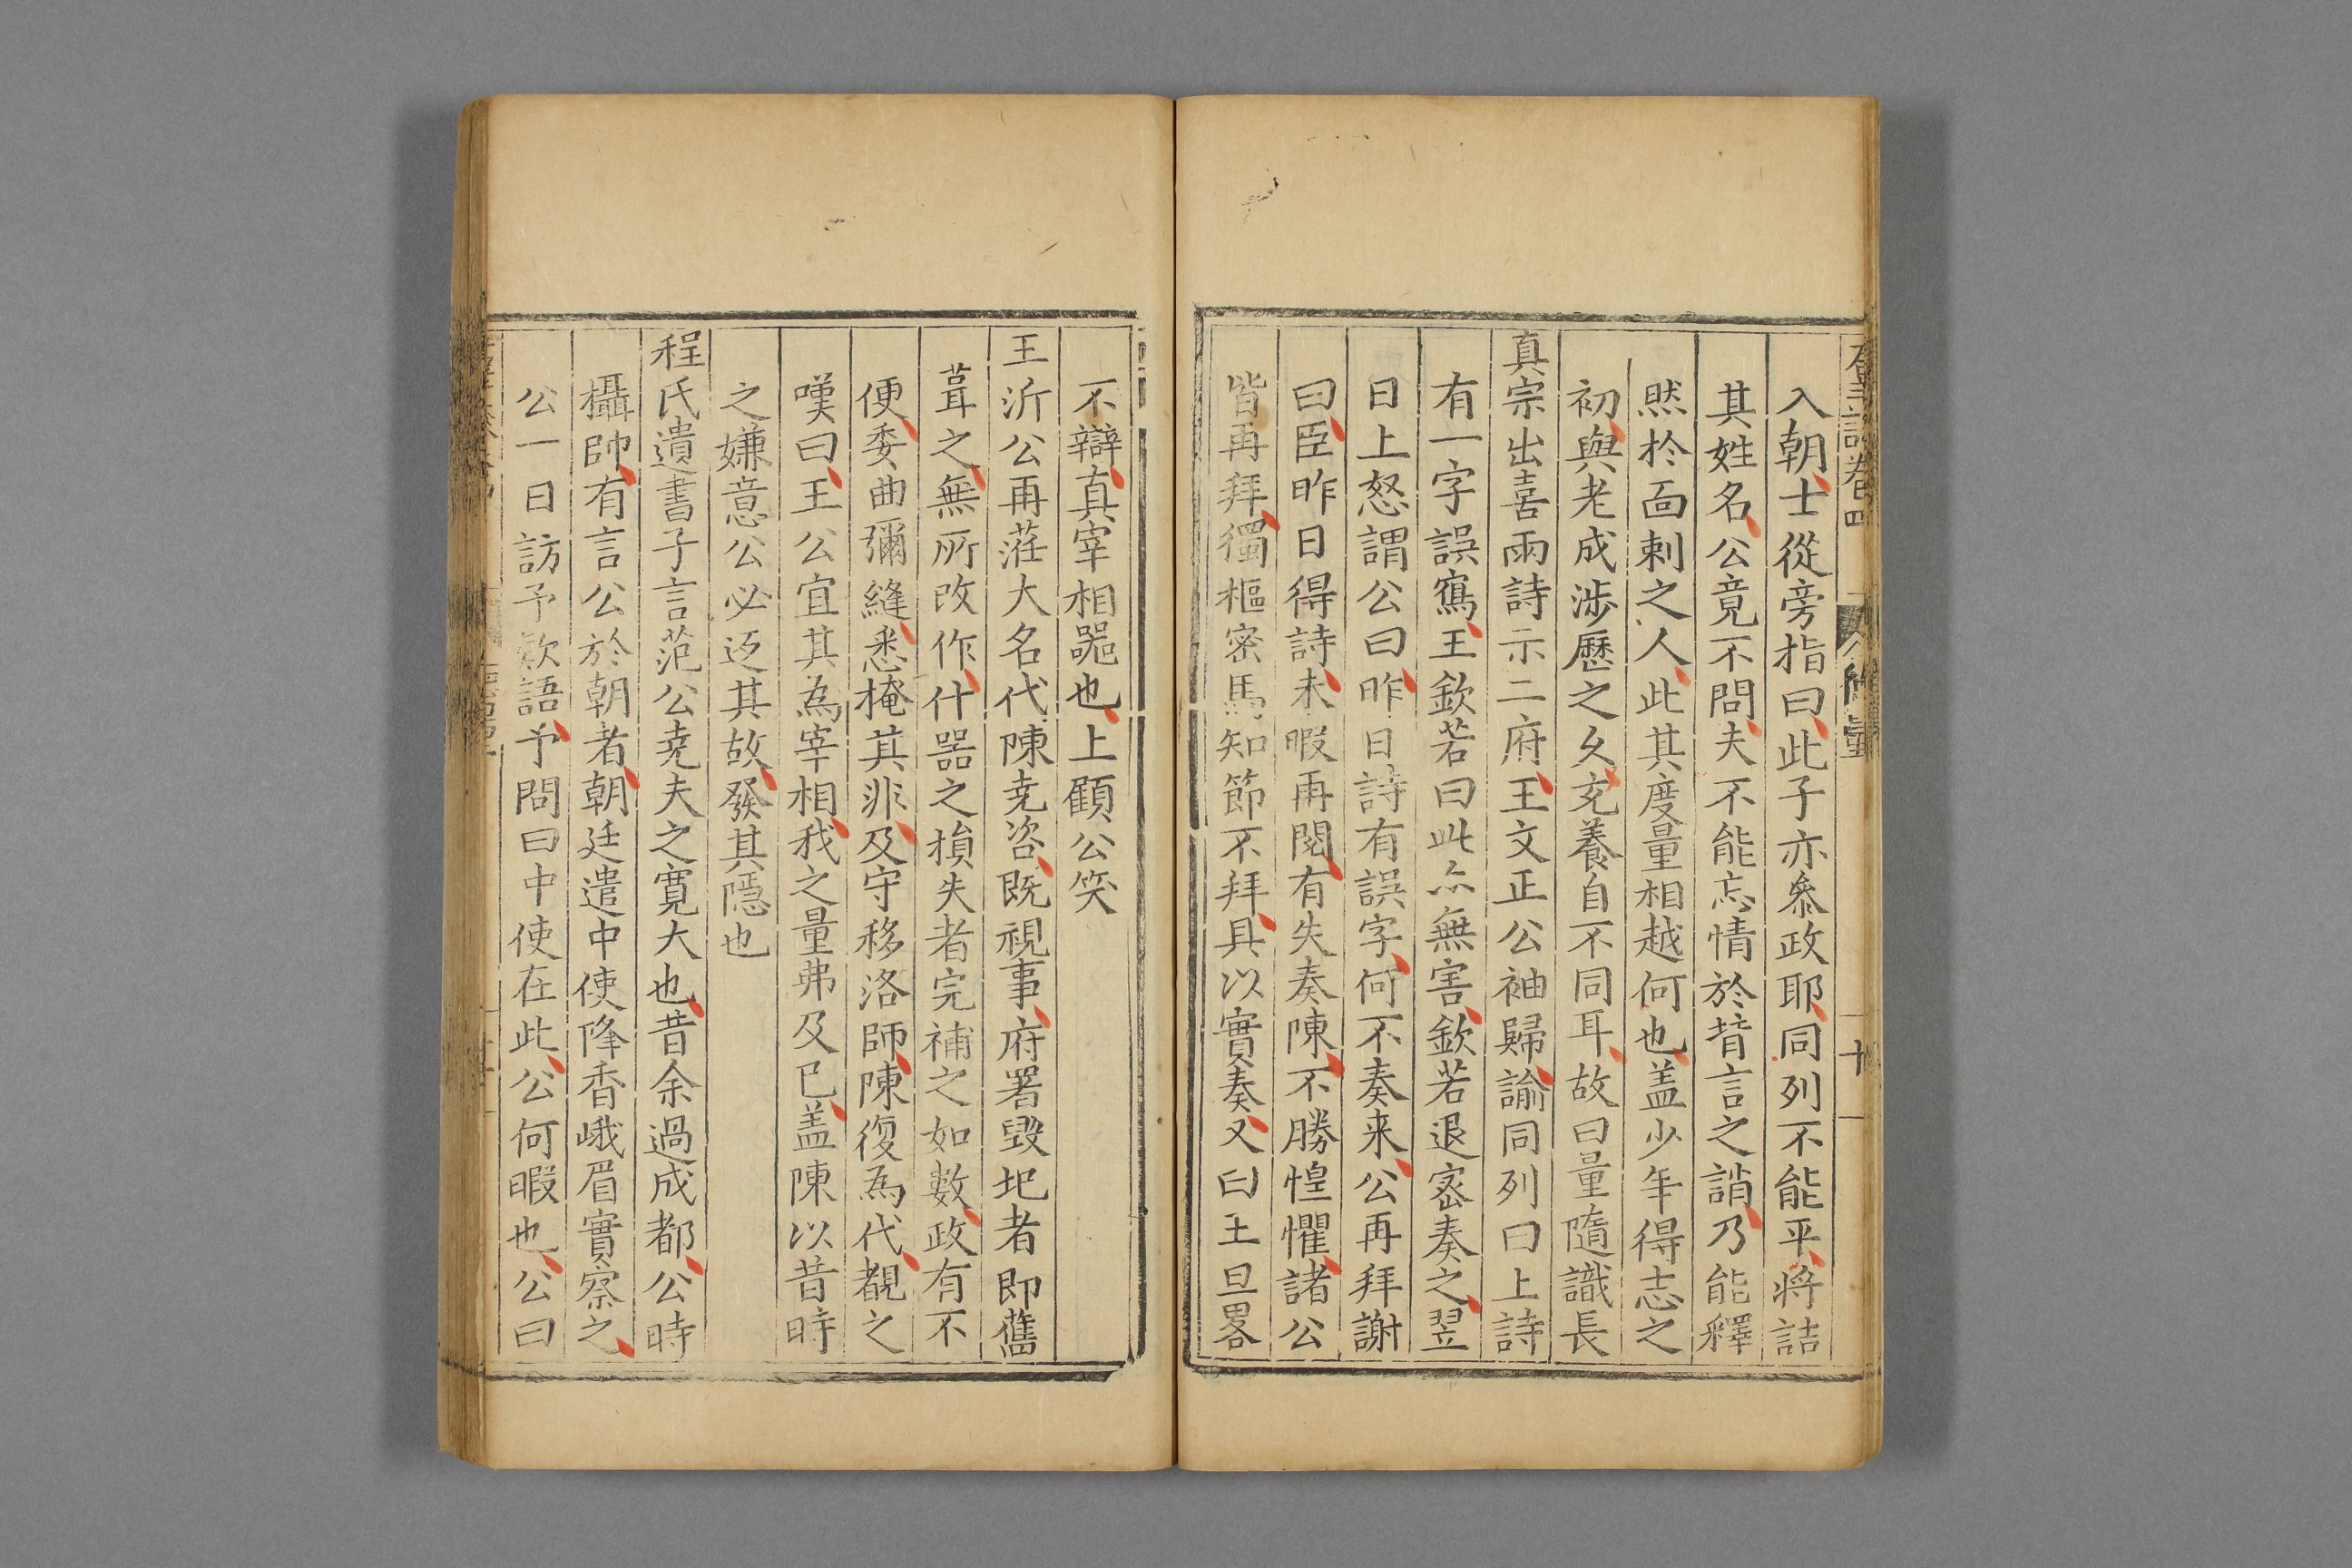 入朝士從旁指曰此子亦叅政耶同列不能平將詰
其姓名公竟不問夫不能忘情於昔言之誚乃能釋
然於面刺之人此其度量相越何也盖少年得志之
初與老成涉歷之久充養自不同耳故曰量隨識長
真宗出喜雨詩示二府王文正公袖歸諭同列曰上詩
有一字誤寫王欽若曰此亦無害欽若退密奏之翌
日上怒謂公曰昨日詩有誤字何不奏来公再拜謝
曰臣昨日得詩未暇再閱有失奏陳不勝惶懼諸公
皆再拜獨樞密馬知節不拜具以實奏又曰王旦畧
不辯真宰相噐也上顧公笑
王沂公再蒞大名代陳堯咨既視事府署毀圯者即舊
葺之無所改作什噐之損失者完補之如數政有不
便委曲彌縫悉掩其非及守移洛師陳復為代覩之
嘆曰王公宜其為宰相我之量弗及已盖陳以昔時
之嫌意公必返其故發其隱也
程氏遺書子言范公堯夫之寬大也昔余過成都公時
攝帥有言公於朝者朝廷遣中使降香峨眉實察之
公一日訪予欵語予問曰中使在此公何暇也公曰